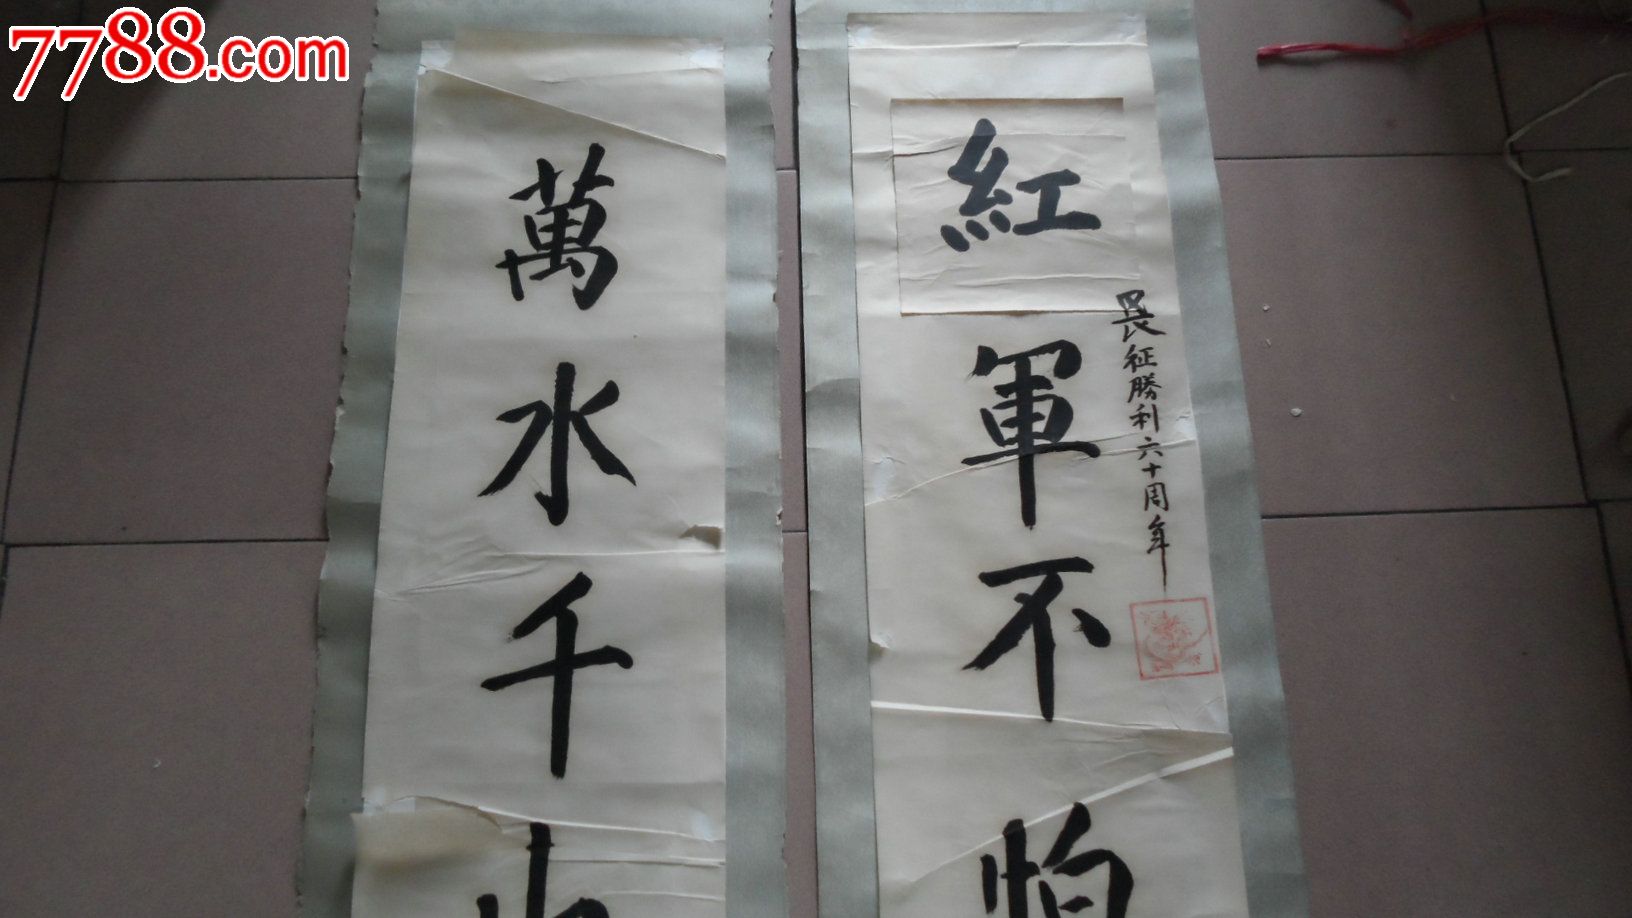 7788.com
紅軍不怕
征勝利六十周年
萬水千